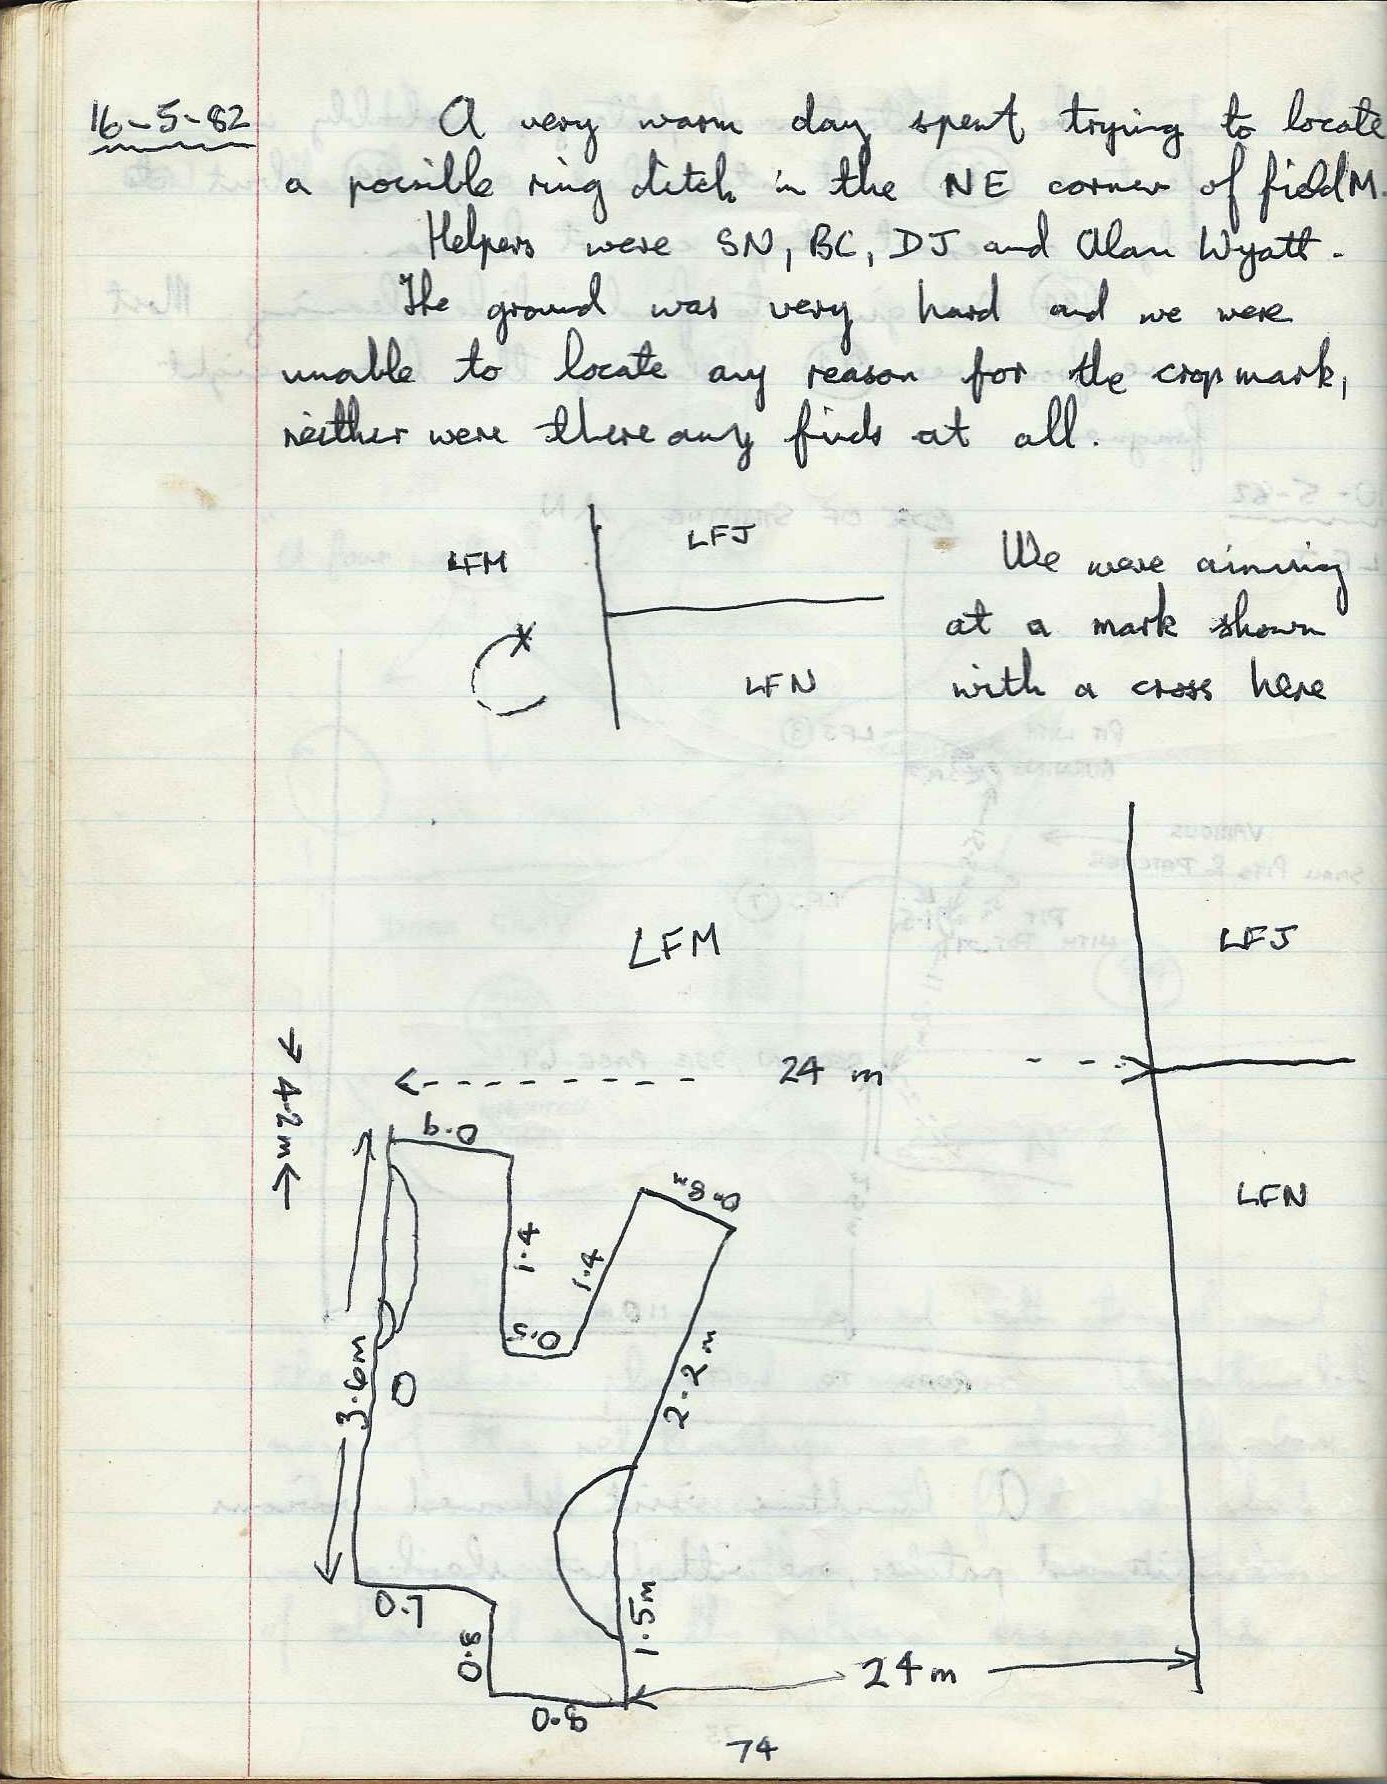 16-5-82
A very warm day spent trying to locate
a possible ring ditch in the NE corner of field M.
Helpers were SN, BC, DJ and Alan Wyatt.
The ground was very hard and we were
unable to locate any reason for the crop mark,
neither were there any finds at all.
LFM
LFJ
LFN
We were aiming
at a mark shown
with a cross here
LFM
LFJ
24 m
4.2m
LFN
0.9
0.8m
1.4
1.4
0.5
3.6m
2.2m
0.7
0.8
1.5m
24m
0.8
74